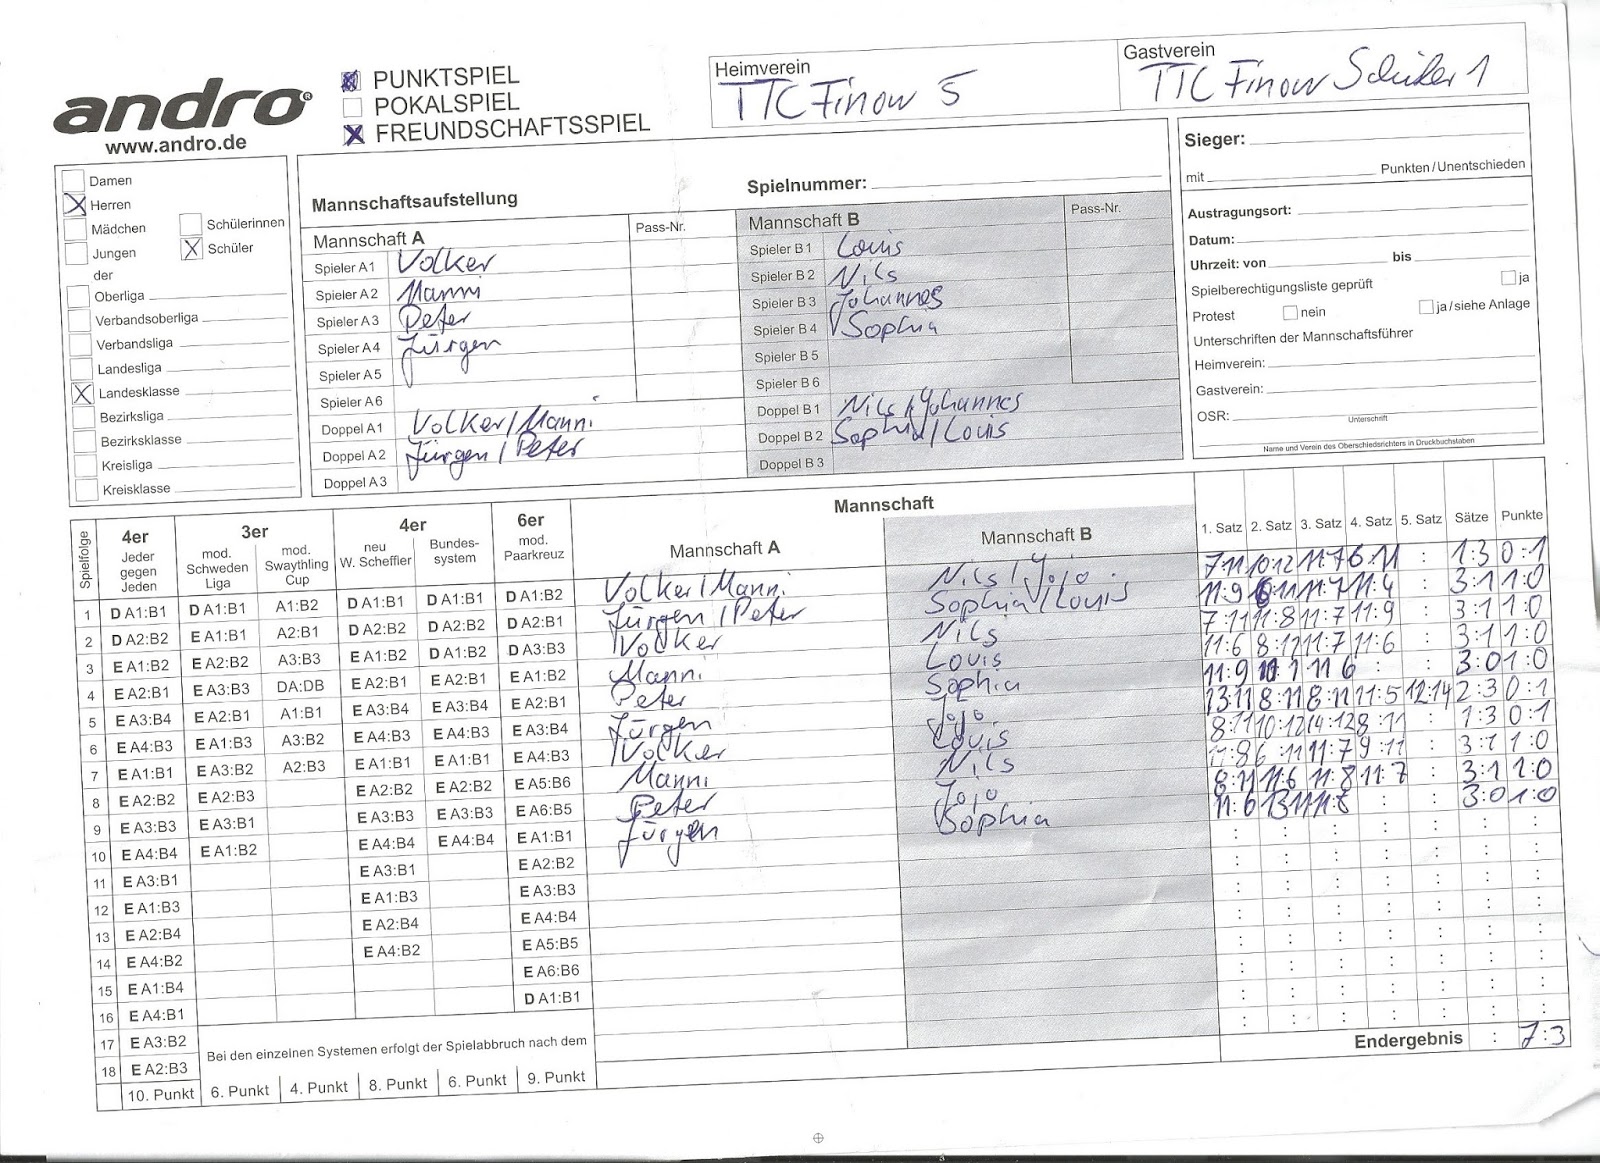 andro®
www.andro.de
PUNKTSPIEL
POKALSPIEL
FREUNDSCHAFTSSPIEL
Heimverein
TTC Finow 5
Gastverein
TTC Finow Schüler 1
Damen
Herren
Mädchen Schülerinnen
Jungen Schüler
der
Oberliga
Verbandsoberliga
Verbandsliga
Landesliga
Landesklasse
Bezirksliga
Bezirksklasse
Kreisliga
Kreisklasse
Mannschaftsaufstellung
Spielnummer:
Mannschaft A Pass-Nr.
Spieler A1 Volker
Spieler A2 Manni
Spieler A3 Peter
Spieler A4 Jürgen
Spieler A5
Spieler A6
Doppel A1 Volker/Manni
Doppel A2 Jürgen/Peter
Doppel A3
Mannschaft B Pass-Nr.
Spieler B1 Louis
Spieler B2 Nils
Spieler B3 Johannes
Spieler B4 Sophia
Spieler B5
Spieler B6
Doppel B1 Nils/Johannes
Doppel B2 Sophia/Louis
Doppel B3
Sieger:
mit Punkten/Unentschieden
Austragungsort:
Datum:
Uhrzeit: von bis
Spielberechtigungsliste geprüft ja
Protest nein ja/siehe Anlage
Unterschriften der Mannschaftsführer
Heimverein:
Gastverein:
OSR:
Unterschrift
Name und Verein des Oberschiedsrichters in Druckbuchstaben
Spielfolge
4er Jeder gegen Jeden
3er
mod. Schweden Liga
mod. Swaythling Cup
4er
neu W. Scheffler
Bundes-system
6er mod. Paarkreuz
Mannschaft
Mannschaft A Mannschaft B
1. Satz 2. Satz 3. Satz 4. Satz 5. Satz Sätze Punkte
1 D A1:B1 D A1:B1 A1:B2 D A1:B1 D A1:B1 D A1:B2 Volker/Manni Nils/Jojo 7:11 10:12 11:7 6:11 : 1:3 0:1
2 D A2:B2 E A1:B1 A2:B1 D A2:B2 D A2:B2 D A2:B1 Jürgen/Peter Sophia/Louis 11:9 6:11 11:7 11:4 : 3:1 1:0
3 E A1:B2 E A2:B2 A3:B3 E A1:B2 D A1:B1 D A3:B3 Volker Nils 7:11 11:8 11:7 11:9 : 3:1 1:0
4 E A2:B1 E A3:B3 DA:DB E A2:B1 E A2:B1 E A1:B2 Manni Louis 11:6 8:11 11:7 11:6 : 3:1 1:0
5 E A3:B4 E A2:B1 A1:B1 E A3:B4 E A3:B4 E A2:B1 Peter Sophia 11:9 11 6 : : 3:0 1:0
6 E A4:B3 E A1:B3 A3:B2 E A4:B3 E A4:B3 E A3:B4 Jürgen Jojo 13:11 8:11 8:11 11:5 12:14 2:3 0:1
7 E A1:B1 E A3:B2 A2:B3 E A1:B1 E A1:B1 E A4:B3 Volker Louis 8:11 10:12 14:12 8:11 : 1:3 0:1
8 E A2:B2 E A2:B3 E A2:B2 E A2:B2 E A5:B6 Manni Nils 11:8 6:11 11:7 9:11 : 3:1 1:0
9 E A3:B3 E A3:B1 E A3:B3 E A3:B3 E A6:B5 Peter Jojo 8:11 11:6 11:8 11:7 : 3:1 1:0
10 E A4:B4 E A1:B2 E A4:B4 E A4:B4 E A1:B1 Jürgen Sophia 11:6 13:11 11:8 : : 3:0 1:0
11 E A3:B1 E A3:B1 E A2:B2
12 E A1:B3 E A1:B3 E A3:B3
13 E A2:B4 E A2:B4 E A4:B4
14 E A4:B2 E A4:B2 E A5:B5
15 E A1:B4 E A6:B6
16 E A4:B1 D A1:B1
17 E A3:B2
18 E A2:B3
Bei den einzelnen Systemen erfolgt der Spielabbruch nach dem
10. Punkt 6. Punkt 4. Punkt 8. Punkt 6. Punkt 9. Punkt
Endergebnis : 7:3